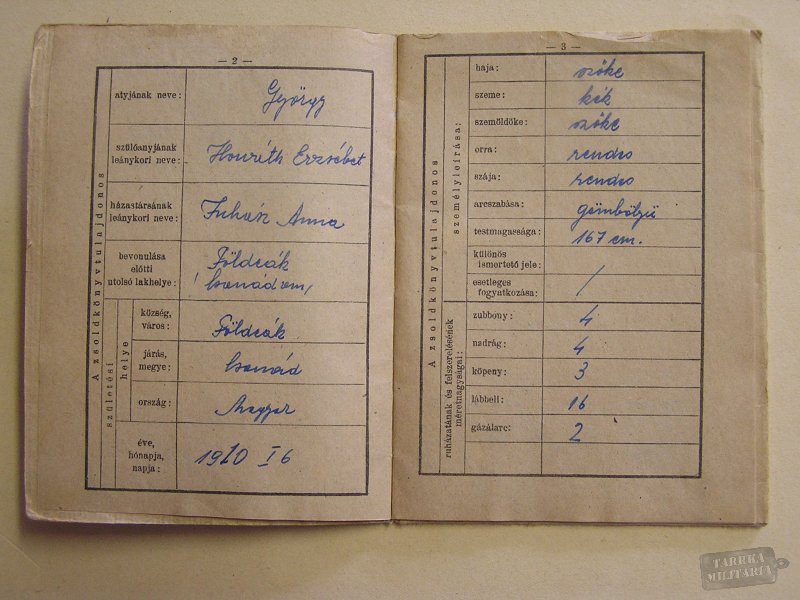 — 2 —
A zsoldkönyvtulajdonos
atyjának neve: György
szülőanyjának
leánykori neve: Horváth Erzsébet
házastársának
leánykori neve: Juhász Anna
bevonulása
előtti
utolsó lakhelye: Földeák
Csanád m,
születési
helye
község,
város: Földeák
járás,
megye: Csanád
ország: Magyar
éve,
hónapja,
napja: 1910 I 6
— 3 —
A zsoldkönyvtulajdonos
személyleírása:
haja: szőke
szeme: kék
szemöldöke: szőke
orra: rendes
szája: rendes
arcszabása: gömbölyű
testmagassága: 167 cm.
különös
ismertető jele:
esetleges
fogyatkozása: /
ruházatának és felszerelésének
méretnagyságai:
zubbony: 4
nadrág: 4
köpeny: 3
lábbeli: 16
gázálarc: 2
TARRKA
MILITARIA